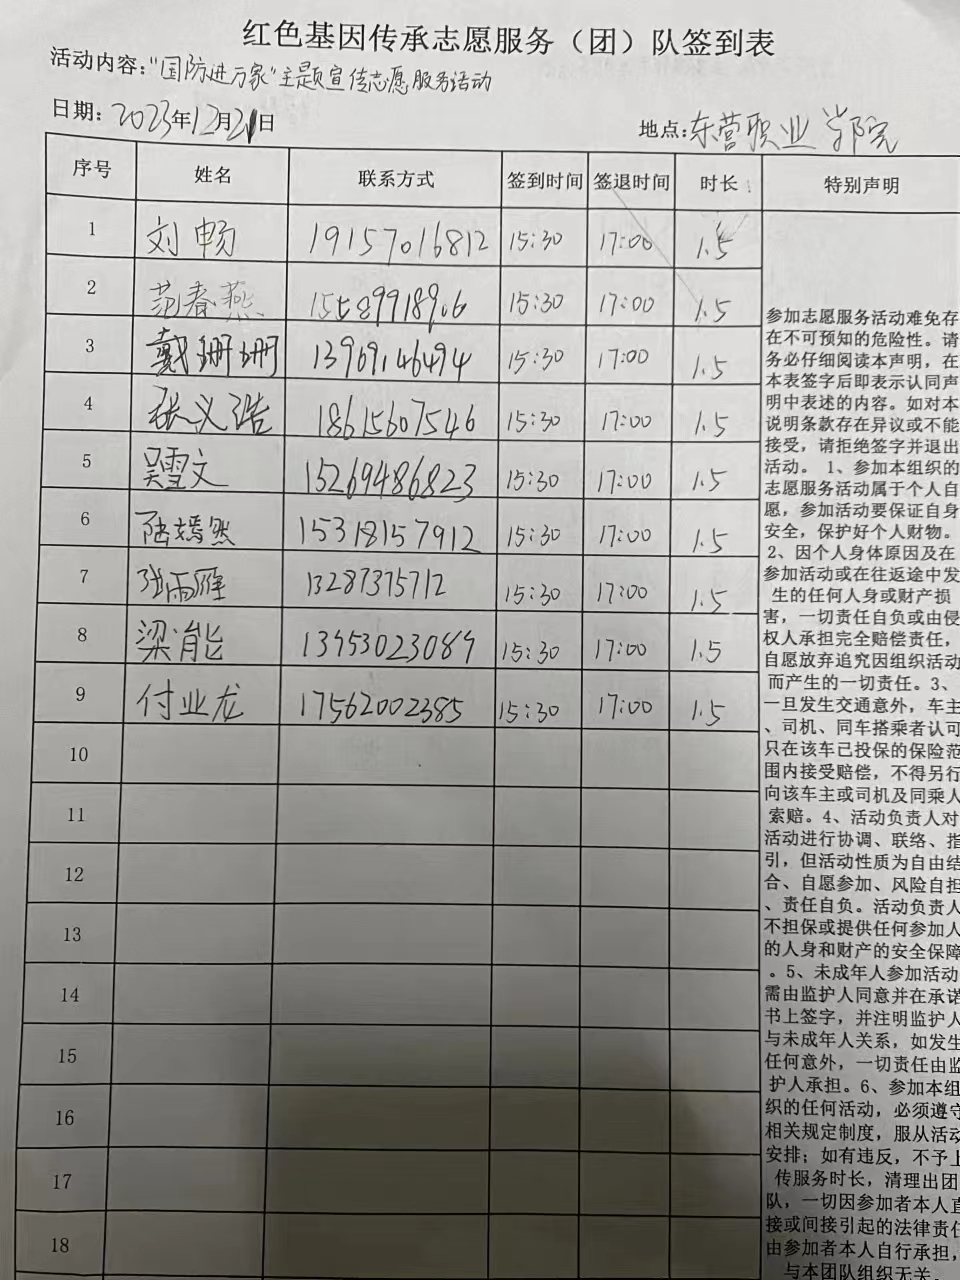 红色基因传承志愿服务（团）队签到表
活动内容："国防进万家"主题宣传志愿服务活动
日期：2023年12月21日 地点：东营职业学院
序号 姓名 联系方式 签到时间 签退时间 时长 特别声明
1 刘畅 19157016812 15:30 17:00 1.5
2 范春燕 15:30 17:00 1.5
3 戴珊珊 13969146494 15:30 17:00 1.5
4 张义浩 18615607546 15:30 17:00 1.5
5 吴雪文 15269486823 15:30 17:00 1.5
6 陆嫣然 15318157912 15:30 17:00 1.5
7 张雨雁 13287375712 15:30 17:00 1.5
8 梁能 13953023089 15:30 17:00 1.5
9 付业龙 17562002385 15:30 17:00 1.5
10
11
12
13
14
15
16
17
18
参加志愿服务活动难免存
在不可预知的危险性。请
务必仔细阅读本声明，在
本表签字后即表示认同声
明中表述的内容。如对本
说明条款存在异议或不能
接受，请拒绝签字并退出
活动。1、参加本组织的
志愿服务活动属于个人自
愿，参加活动要保证自身
安全，保护好个人财物。
2、因个人身体原因及在
参加活动或在往返途中发
生的任何人身或财产损
害，一切责任自负或由侵
权人承担完全赔偿责任，
自愿放弃追究因组织活动
而产生的一切责任。3、
一旦发生交通意外，车主
、司机、同车搭乘者认可
只在该车已投保的保险范
围内接受赔偿，不得另行
向该车主或司机及同乘人
索赔。4、活动负责人对
活动进行协调、联络、指
引，但活动性质为自由结
合、自愿参加、风险自担
、责任自负。活动负责人
不担保或提供任何参加人
的人身和财产的安全保障
。5、未成年人参加活动
需由监护人同意并在承诺
书上签字，并注明监护人
与未成年人关系，如发生
任何意外，一切责任由监
护人承担。6、参加本组
织的任何活动，必须遵守
相关规定制度，服从活动
安排；如有违反，不予上
传服务时长，清理出团
队，一切因参加者本人直
接或间接引起的法律责任
由参加者本人自行承担，
与本团队组织无关。